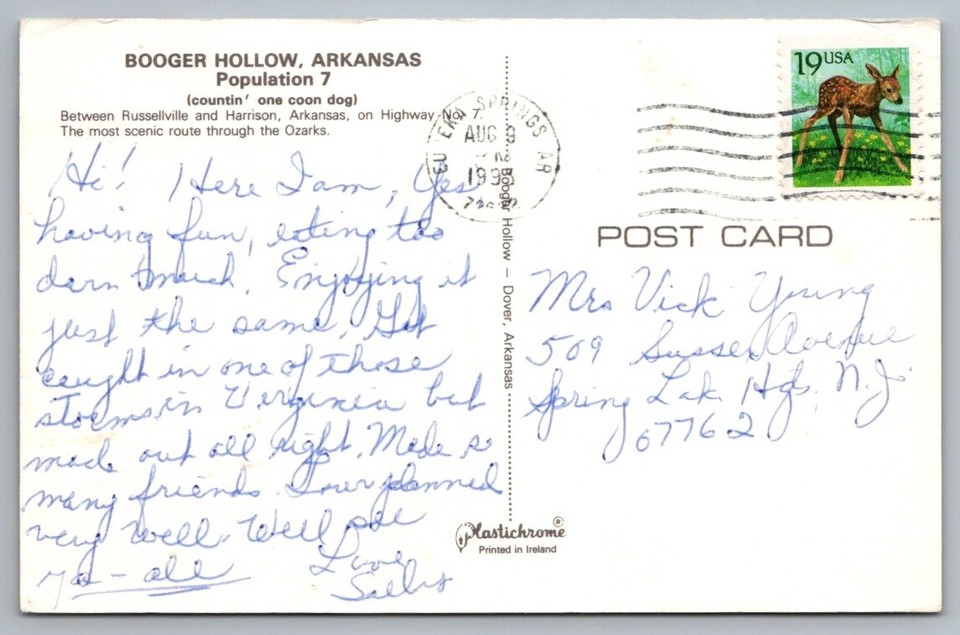 BOOGER HOLLOW, ARKANSAS
Population 7
(countin' one coon dog)
Between Russellville and Harrison, Arkansas, on Highway No. 7.
The most scenic route through the Ozarks.
Hi! Here I am, Yes
having fun, eating too
darn much. Enjoying it
just the same. Got
caught in one of those
storms in Virginia but
made out all right. Made so
many friends. Tour planned
very well. Well see
ya-all
Love
Sally
EUREKA SPRINGS AR
AUG 9
199
Booger Hollow — Dover, Arkansas
19 USA
POST CARD
Mrs Vick Young
509 Sussex Avenue
Spring Lak Hgts, N.J.
07762
Plastichrome®
Printed in Ireland